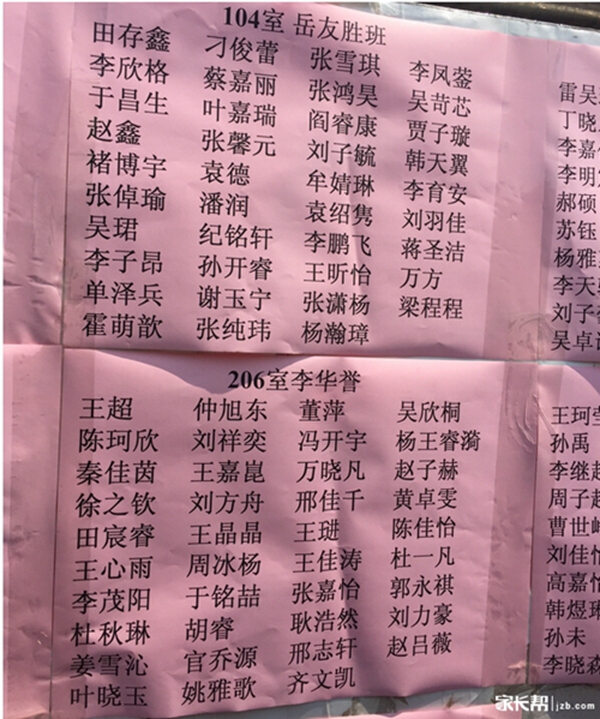 104室 岳友胜班
田存鑫 刁俊蕾 张雪琪 李凤蓥
李欣格 蔡嘉丽 张鸿昊 吴苛芯
于昌生 叶嘉瑞 阎睿康 贾子璇
赵鑫 张馨元 刘子毓 韩天翼
褚博宇 袁德 牟婧琳 李育安
张倬瑜 潘润 袁绍隽 刘羽佳
吴珺 纪铭轩 李鹏飞 蒋圣洁
李子昂 孙开睿 王昕怡 万方
单泽兵 谢玉宁 张潇杨 梁程程
霍萌歆 张纯玮 杨瀚璋
雷吴
丁晓
李嘉
李明
郝硕
苏钰
杨雅
李天
刘子
吴卓
206室李华誉
王超 仲旭东 董萍 吴欣桐
陈珂欣 刘祥奕 冯开宇 杨王睿漪
秦佳茵 王嘉崑 万晓凡 赵子赫
徐之钦 刘方舟 邢佳千 黄卓雯
田宸睿 王晶晶 王琎 陈佳怡
王心雨 周冰杨 王佳涛 杜一凡
李茂阳 于铭喆 张嘉怡 郭永祺
杜秋琳 胡睿 耿浩然 刘力豪
姜雪沁 官乔源 邢志轩 赵吕薇
叶晓玉 姚雅歌 齐文凯
王珂
孙禹
李继
周子
曹世
刘佳
高嘉
韩煜
孙未
李晓森
家长帮 jzb.com